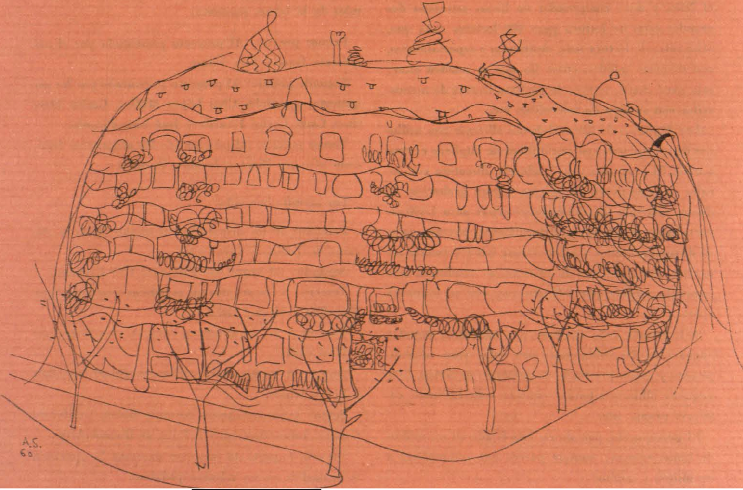 A.S.
60